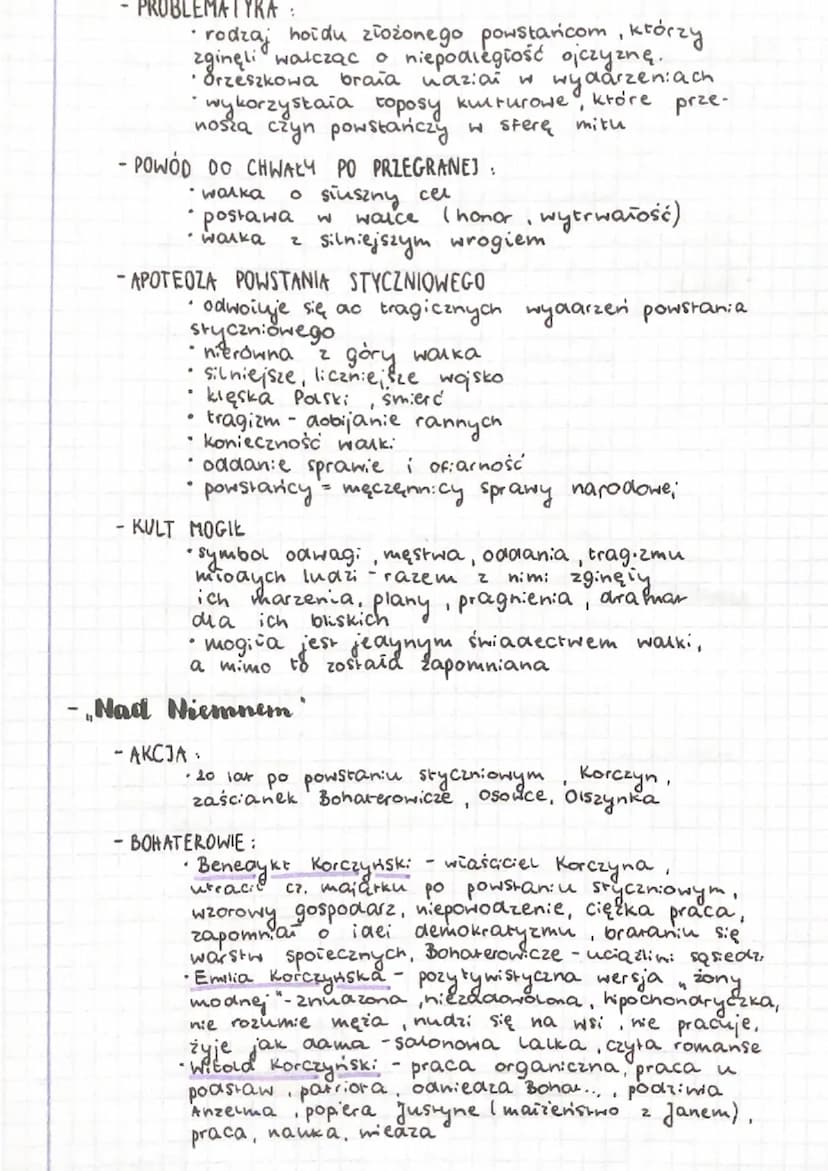 - PROBLEMATYKA :
· rodzaj hołdu złożonego powstańcom, którzy
zginęli walcząc o niepodległość ojczyznę.
· Orzeszkowa brała udział w wydarzeniach
· wykorzystała toposy kulturowe, które prze-
noszą czyn powstańczy w sferę mitu
- POWÓD DO CHWAŁY PO PRZEGRANEJ :
· walka o słuszny cel
· postawa w walce (honor, wytrwałość)
· walka z silniejszym wrogiem
- APOTEOZA POWSTANIA STYCZNIOWEGO
· odwołuje się do tragicznych wydarzeń powstania
styczniowego
· nierówna z góry walka
· silniejsze, liczniejsze wojsko
· klęska Polski, śmierć
· tragizm - dobijanie rannych
· konieczność walki
· oddanie sprawie i ofiarność
· powstańcy = męczennicy sprawy narodowej
- KULT MOGIŁ
· symbol odwagi, męstwa, oddania, tragizmu
młodych ludzi - razem z nimi zginęły
ich marzenia, plany, pragnienia,
dla ich bliskich
· mogiła jest jedynym świadectwem walki,
a mimo to została zapomniana
- „Nad Niemnem"
- AKCJA :
· 20 lat po powstaniu styczniowym, Korczyn,
zaścianek Bohaterowicze, Osowce, Olszynka
- BOHATEROWIE :
· Benedykt Korczyński - właściciel Korczyna,
utracił cz. majątku po powstaniu styczniowym,
wzorowy gospodarz, niepowodzenie, ciężka praca,
zapomniał o idei demokratyzmu, brataniu się
warstw społecznych, Bohaterowicze - uciążliwi sąsiedzi
· Emilia Korczyńska - pozytywistyczna wersja „żony
modnej" - znudzona, niezadowolona, hipochondryczka,
nie rozumie męża, nudzi się na wsi, nie pracuje,
żyje jak dama - salonowa lalka, czyta romanse
· Witold Korczyński - praca organiczna, praca u
podstaw, patriota, odwiedza Bohat..., podziwia
Anzelma, popiera Justynę (małżeństwo z Janem),
praca, nauka, wiedza